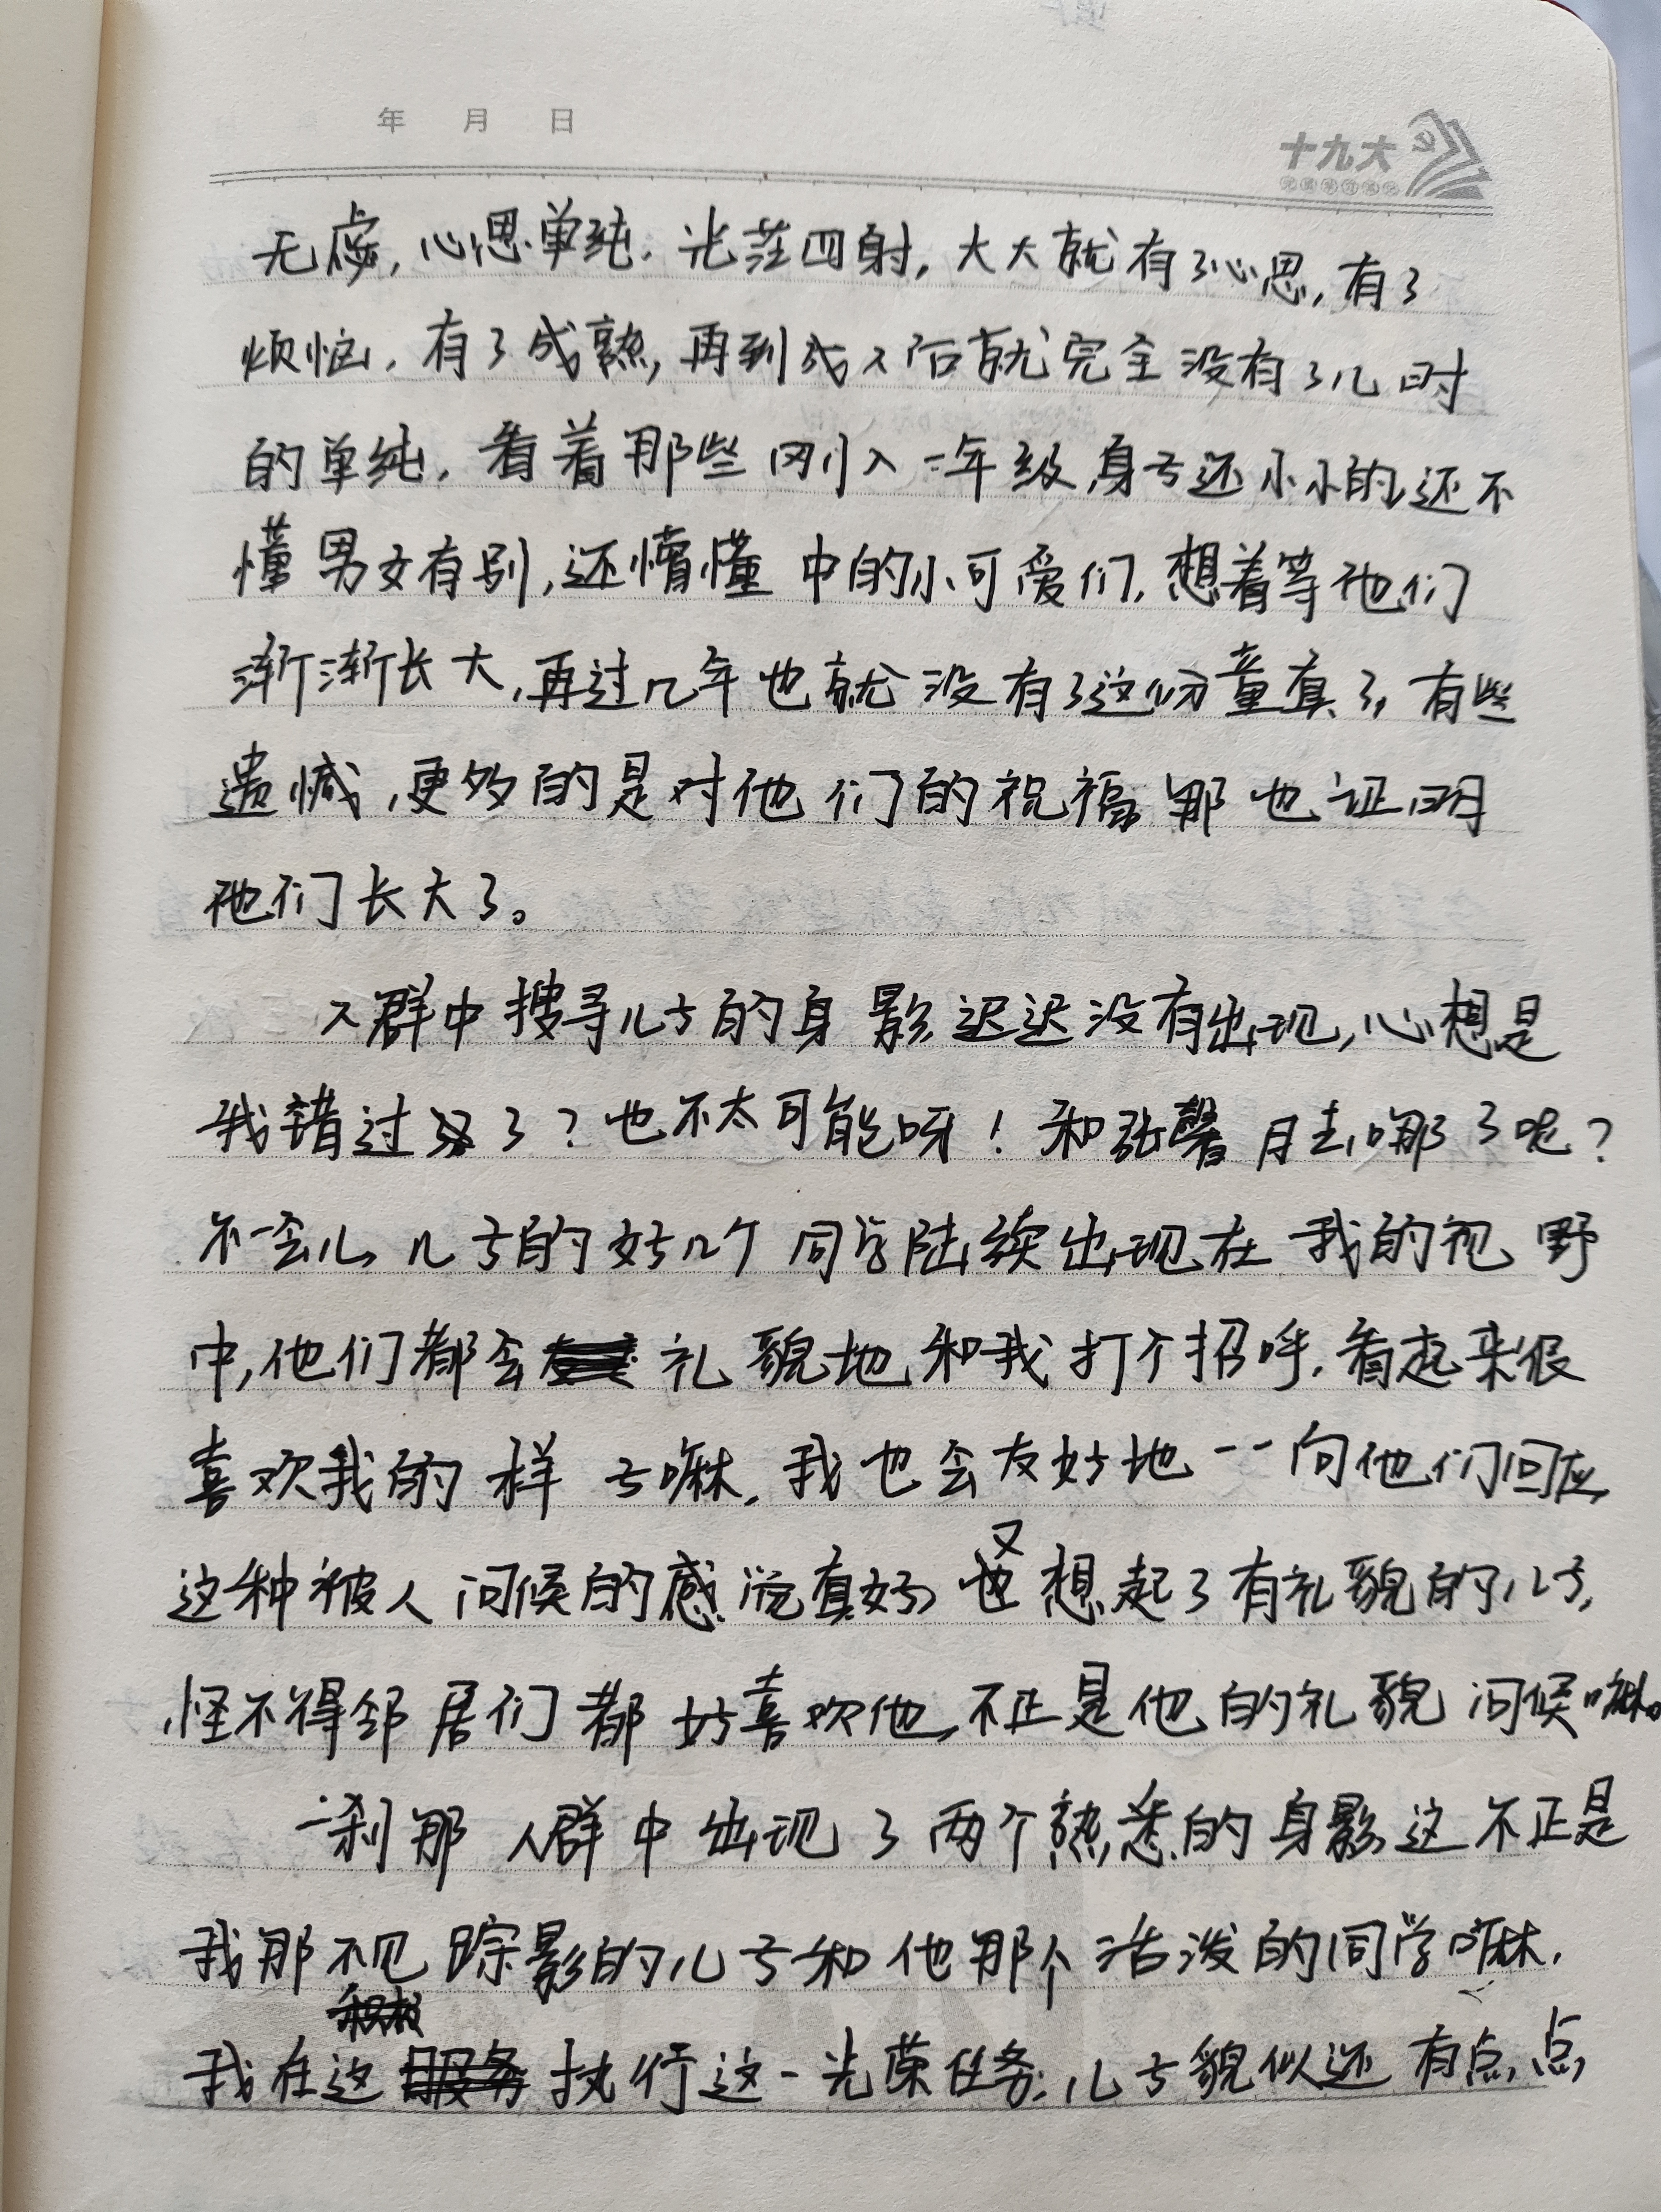 年 月 日
十九大
无虑，心思单纯，光茫四射，大大就有了心思，有了
烦恼，有了成熟，再到成人后就完全没有了儿时
的单纯，看着那些刚入一年级，身子还小小的，还不
懂男女有别，还懵懂中的小可爱们，想着等他们
渐渐长大，再过几年也就没有了这份童真了，有些
遗憾，更多的是对他们的祝福，那也证明
他们长大了。
人群中搜寻儿子的身影，迟迟没有出现，心想是
我错过了？也不太可能呀！和张馨月去哪了呢？
不一会儿，儿子的好几个同学陆续出现在我的视野
中，他们都会礼貌地和我打个招呼，看起来很
喜欢我的样子嘛，我也会友好地一一向他们回应，
这种被人问候的感觉真好，又想起了有礼貌的儿子，
怪不得邻居们都好喜欢他，不正是他的礼貌问候嘛。
一刹那人群中出现了两个熟悉的身影，这不正是
我那不见踪影的儿子和他那个活泼的同学嘛，
我在这执行这一光荣任务，儿子貌似还有点点